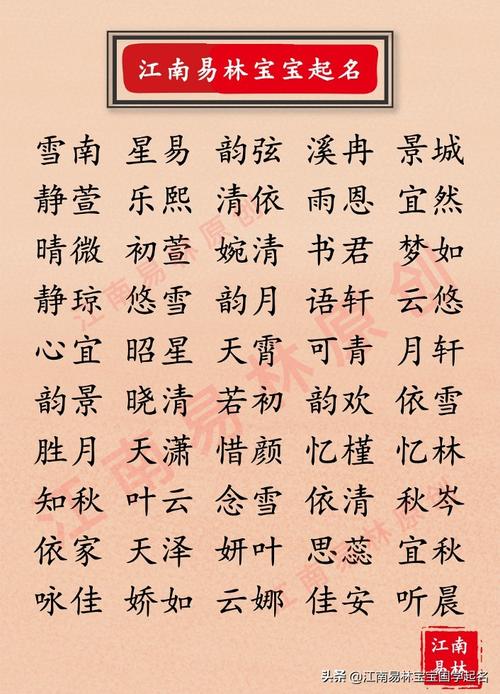 江南易林宝宝起名
雪南 星易 韵弦 溪冉 景城
静萱 乐熙 清依 雨恩 宜然
晴微 初萱 婉清 书君 梦如
静琼 悠雪 韵月 语轩 云悠
心宜 昭星 天霄 可青 月轩
韵景 晓清 若初 韵欢 依雪
胜月 天潇 惜颜 忆槿 忆林
知秋 叶云 念雪 依清 秋岑
依家 天泽 妍叶 思蕊 宜秋
咏佳 娇如 云娜 佳安 听晨
江南易林原创
江南易林原创
江南易林原创
江南
易林
头条 @江南易林宝宝国学起名